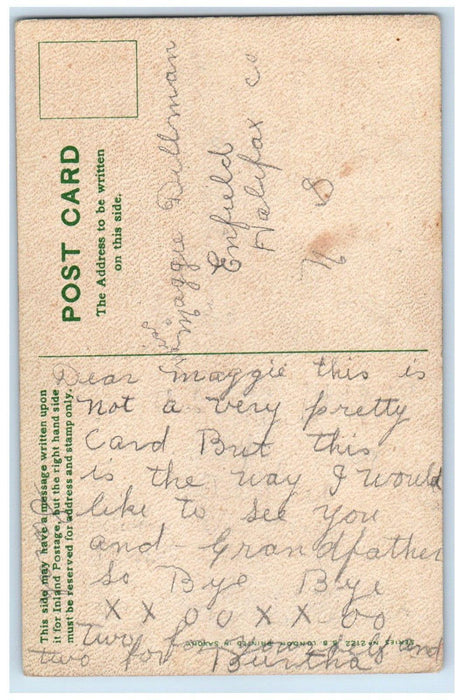 POST CARD
The Address to be written
on this side.
Miss Maggie Dillman
Enfield
Halifax co
N S
This side may have a message written upon
it for Inland Postage, but the right hand side
must be reserved for address and stamp only.
Dear Maggie this is
not a very pretty
Card But this
is the way I would
like to see you
and Grandfather
so Bye Bye
X X OO X X OO
two for
two for Burtha
and